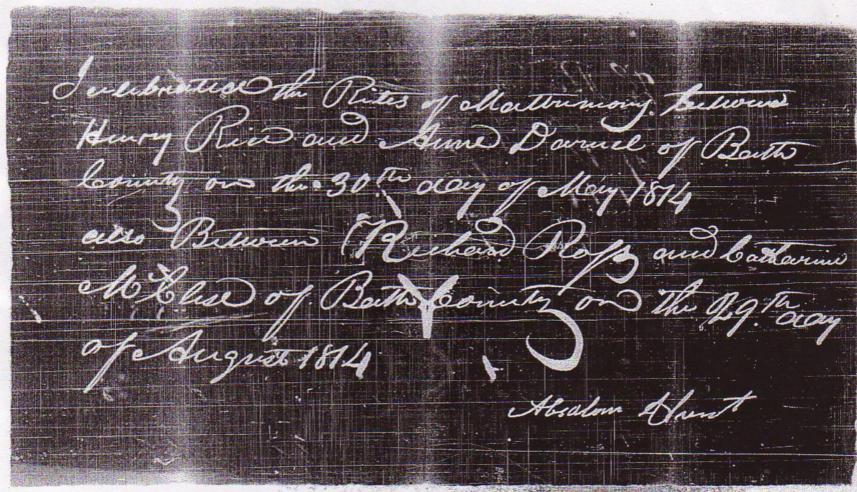 I celebrated the Rites of Matrimony between
Henry Rice and Anne Darnel of Bath
County on the 30th day of May 1814
also Between Richard Ross and Catharine
of Bath County on the 29th day
of August 1814
Absalom Hunt